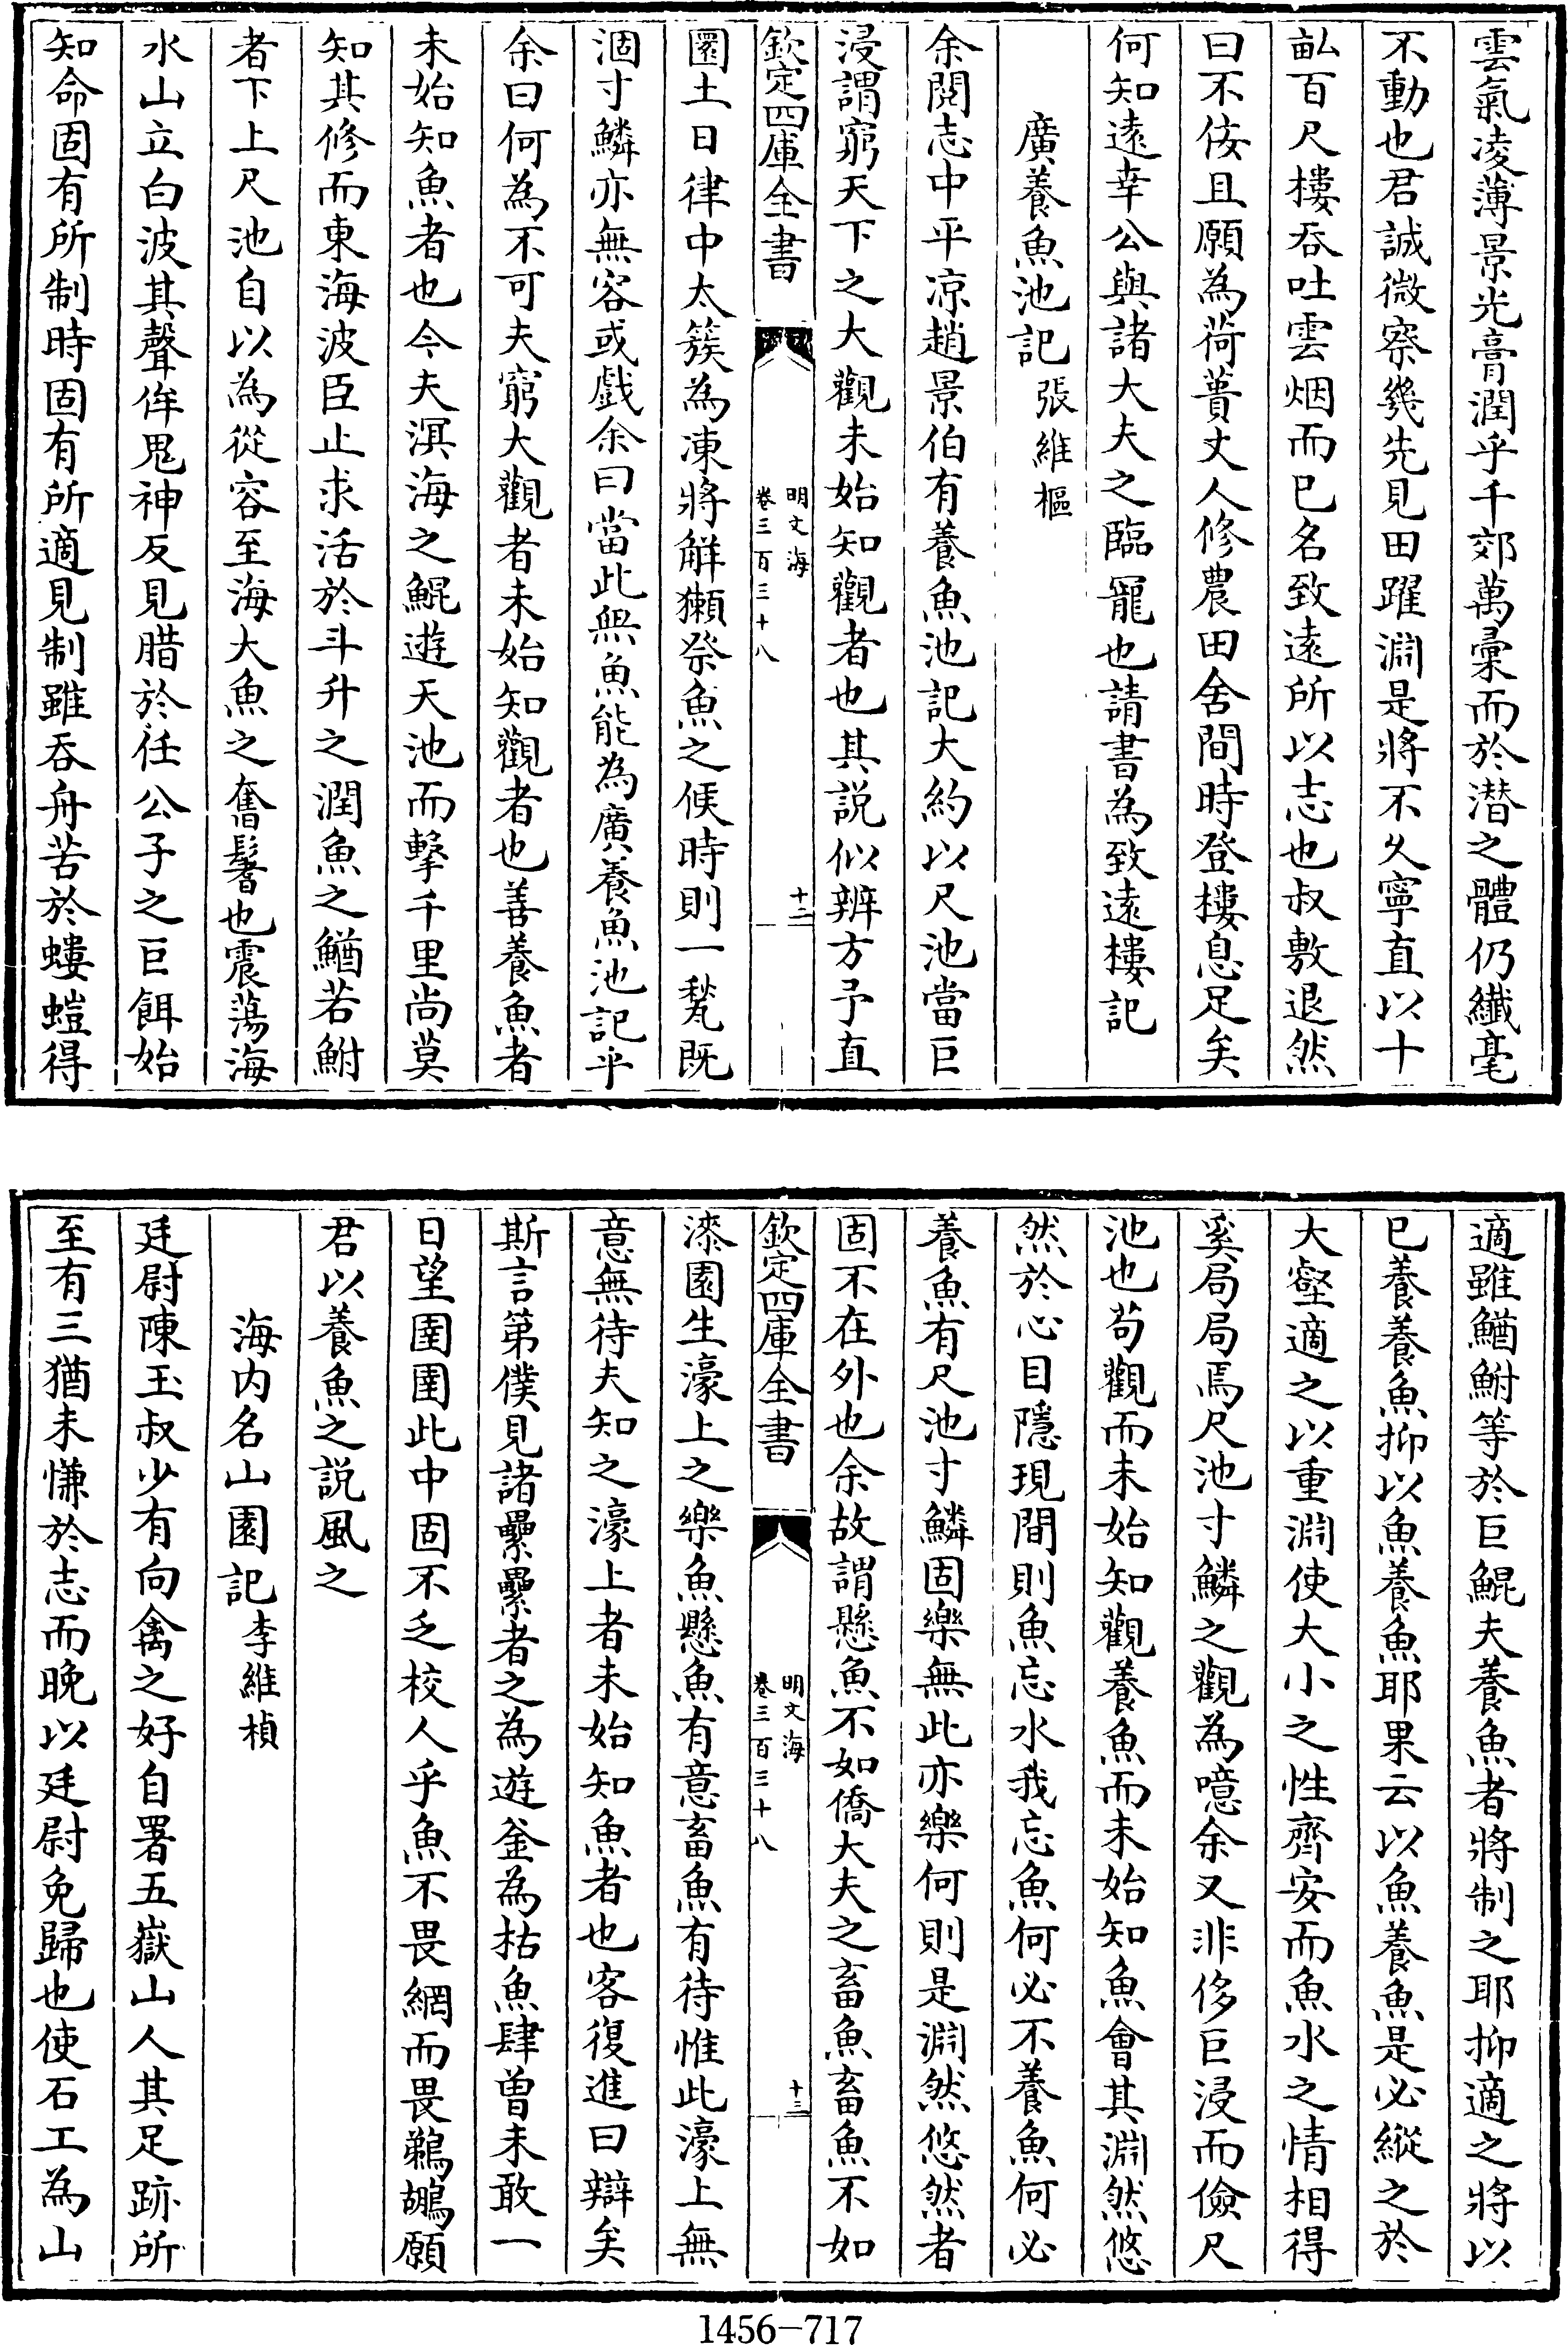 雲氣凌薄景光膏潤乎千郊萬彙而於潜之體仍纖毫
不動也君誠微察幾先見田躍淵是將不久寧直以十
畝百尺樓吞吐雲烟而已名致遠所以志也叔敷退然
曰不侫且願為荷蕢丈人修農田舍間時登樓息足矣
何知遠幸公與諸大夫之臨寵也請書為致遠樓記
廣養魚池記張維樞
余閱志中平凉趙景伯有養魚池記大約以尺池當巨
浸謂窮天下之大觀未始知觀者也其説似辨方予直
欽定四庫全書
明文海
卷三百三十八
十二
圜土日律中太簇為凍將觧獺祭魚之候時則一氷既
涸寸鱗亦無容或戯余曰當此無魚能為廣養魚池記乎
余曰何為不可夫窮大觀者未始知觀者也善養魚者
未始知魚者也今夫溟海之鯤遊天池而擊千里尚莫
知其修而東海波臣止求活於斗升之潤魚之鰌若鮒
者下上尺池自以為從容至海大魚之奮鬐也震蕩海
水山立白波其聲侔鬼神反見腊於任公子之巨餌始
知命固有所制時固有所適見制雖吞舟苦於螻螘得
適雖鰌鮒等於巨鯤夫養魚者將制之耶抑適之將以
已養養魚抑以魚養魚耶果云以魚養魚是必縱之於
大壑適之以重淵使大小之性齊安而魚水之情相得
奚局局焉尺池寸鱗之觀為噫余又非侈巨浸而儉尺
池也茍觀而未始知觀養魚而未始知魚會其淵然悠
然於心目隱現間則魚忘水我忘魚何必不養魚何必
養魚有尺池寸鱗固樂無此亦樂何則是淵然悠然者
固不在外也余故謂懸魚不如僑大夫之畜魚畜魚不如
欽定四庫全書
明文海
卷三百三十八
十三
漆園生濠上之樂魚懸魚有意畜魚有待惟此濠上無
意無待夫知之濠上者未始知魚者也客復進曰辯矣
斯言第僕見諸纍纍者之為遊釜為枯魚肆曾未敢一
日望圉圉此中固不乏校人乎魚不畏網而畏鵜鶘願
君以養魚之説風之
海内名山園記李維楨
廷尉陳玉叔少有向禽之好自署五嶽山人其足跡所
至有三猶未慊於志而晚以廷尉免歸也使石工為山
1456-717